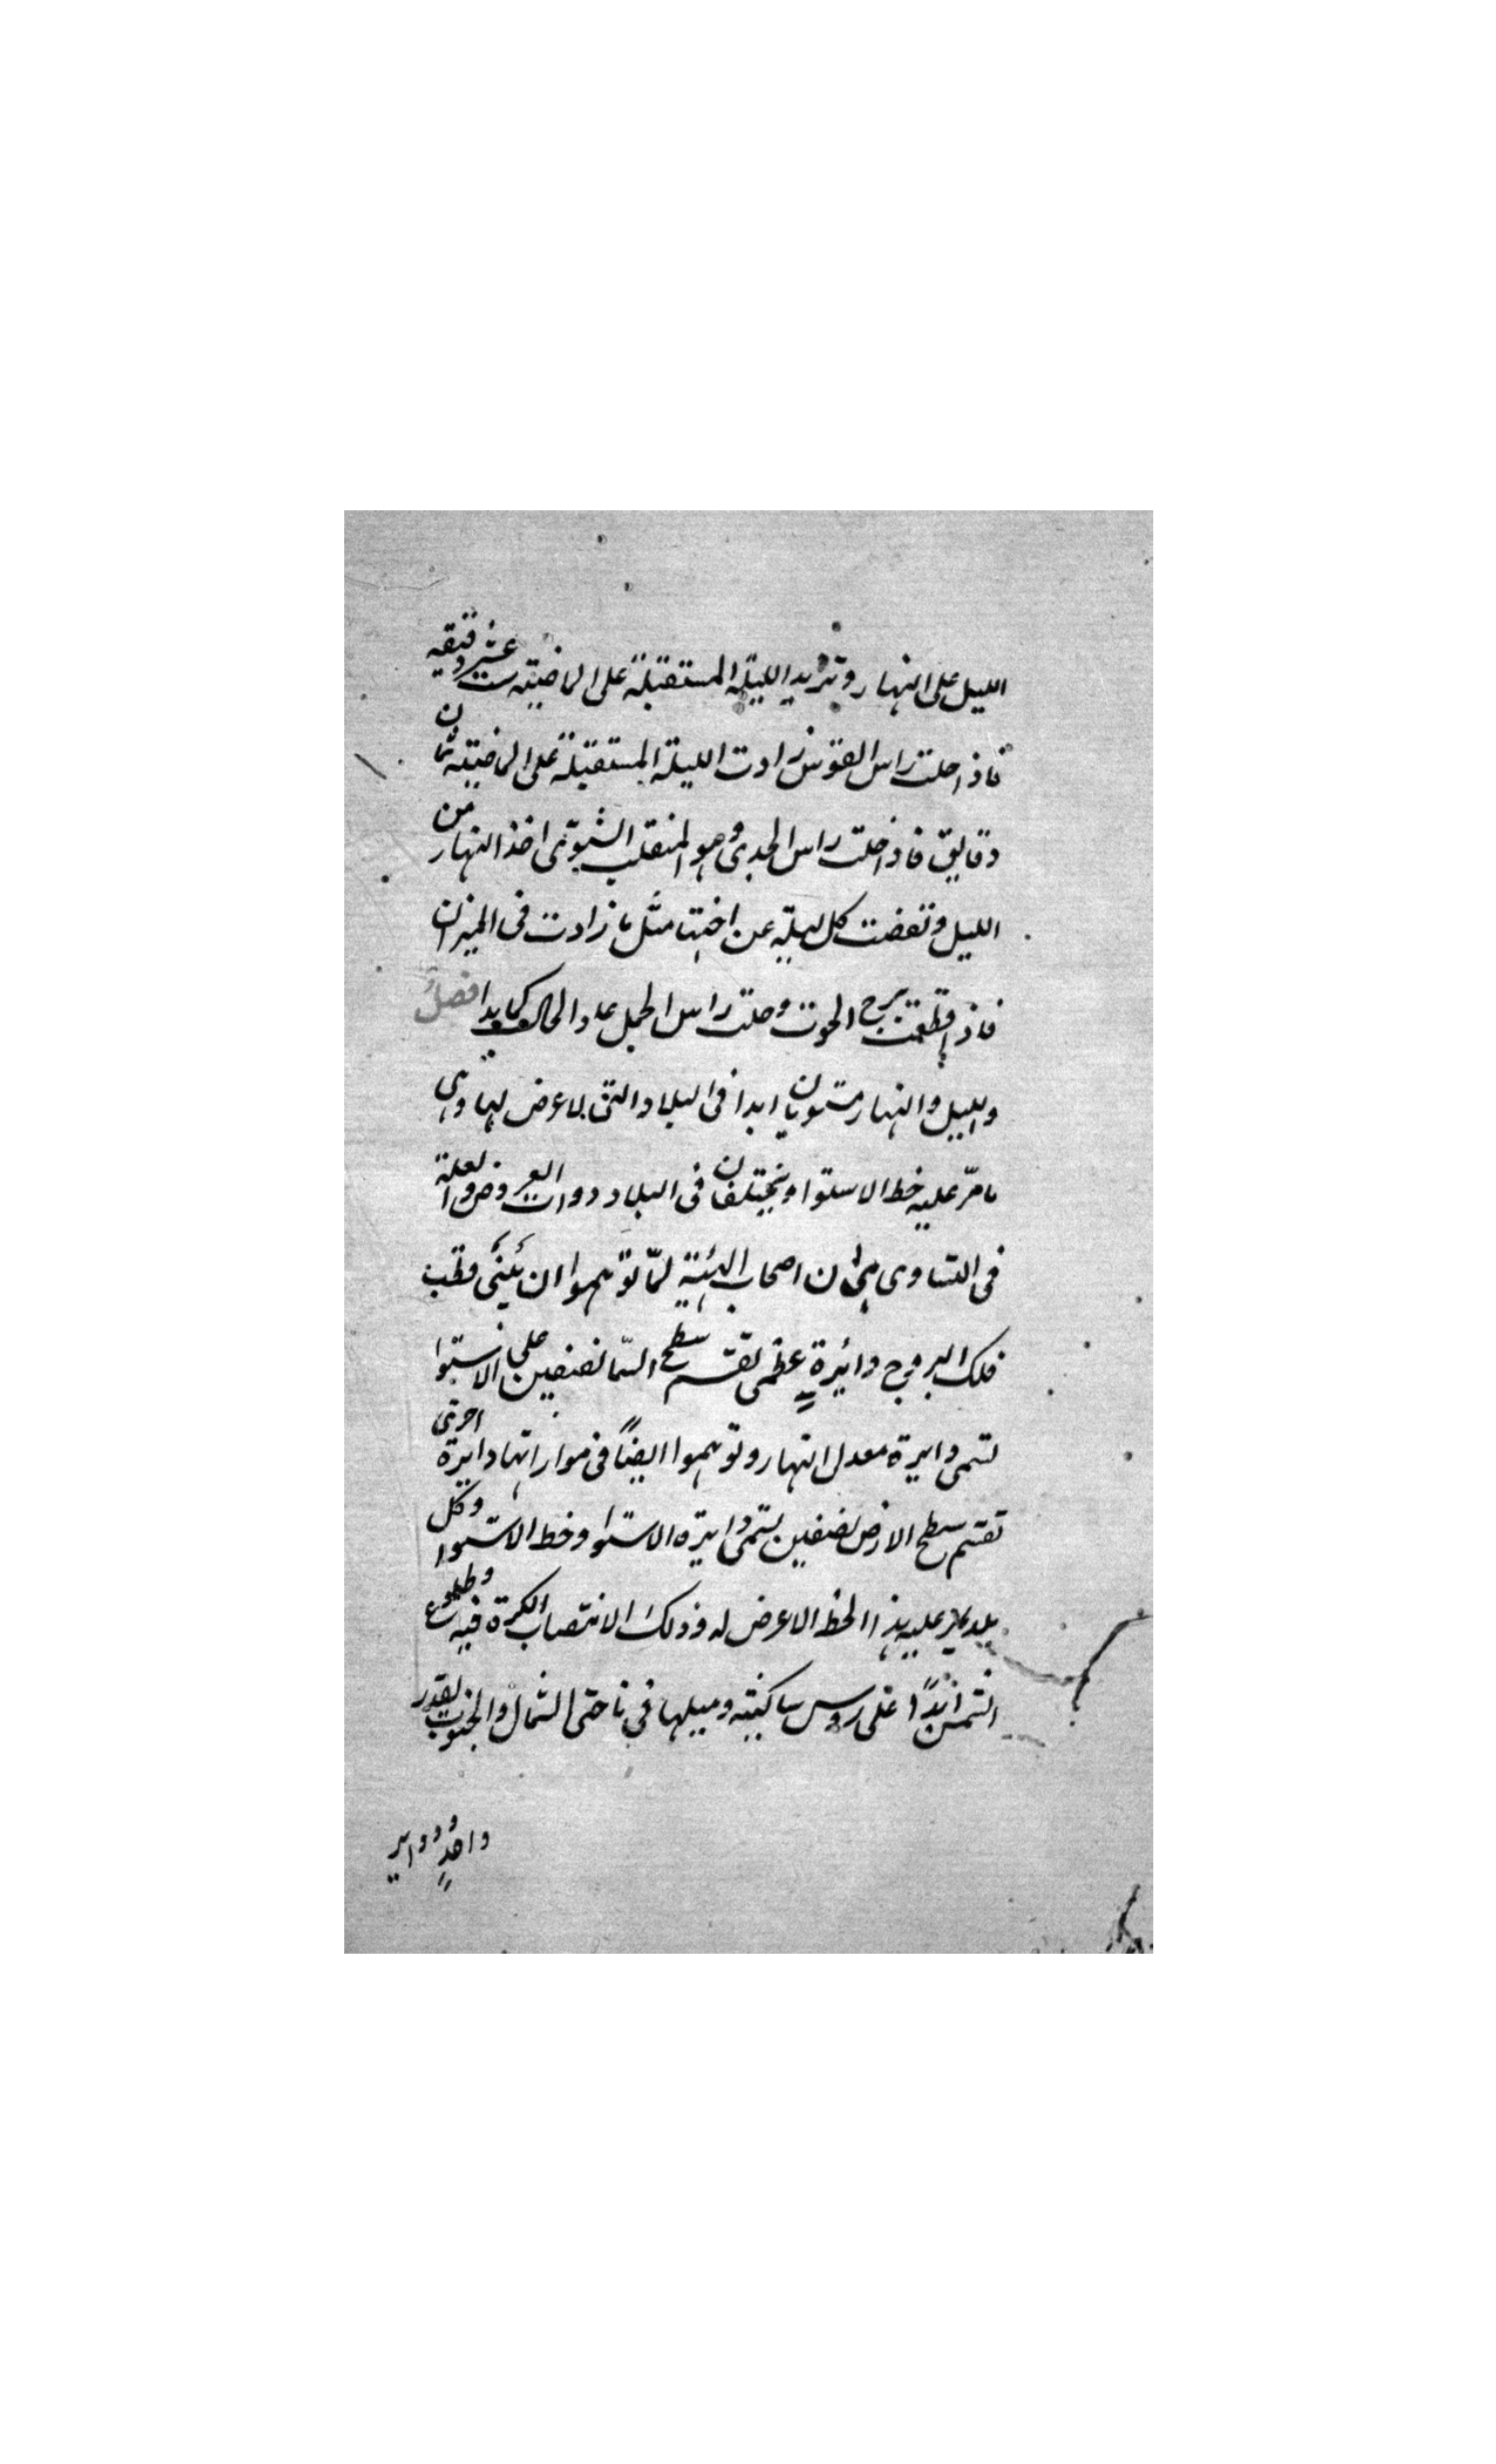 الليل على النهار وتزيد الليلة المستقبلة على الماضية ست عشر دقيقه
فاذا حلت راس القوس زادت الليلة المستقبلة على الماضية ثمان
دقايق فاذا حلت راس الجدى وهو المنقلب الشتوى اخذ النهار من
الليل ونقصت كل ليلة عن اختها مثل ما زادت فى الميزان
فاذا قطعت برج الحوت وحلت راس الحمل عاد الحال كما بدا فصل
والليل والنهار مستويان ابدا فى البلاد التى لا عرض لها وهى
ما مرّ عليه خط الاستوا ويختلفان فى البلاد ذوات العروض والعلة
فى التساوى هى ان اصحاب الهيئة لمّا توهموا ان بين قطب
فلك البروج دائرة عظمى تقسم سطح السّما نصفين على الاستوا
تسمى دايرة معدل النهار وتوهموا ايضاً فى موازاتها دايرة اخرى
تقسم سطح الارض نصفين يسمى دايرة الاستوا وخط الاستوا وكل
بلد يمر عليه هذا الخط لا عرض له وذلك لانتصاب الكرة فيه وطلوع
الشمس ابدًا على روس ساكنيه وميلها فى ناحتى الشمال والجنوب بقدر
واحدٍ ودواير